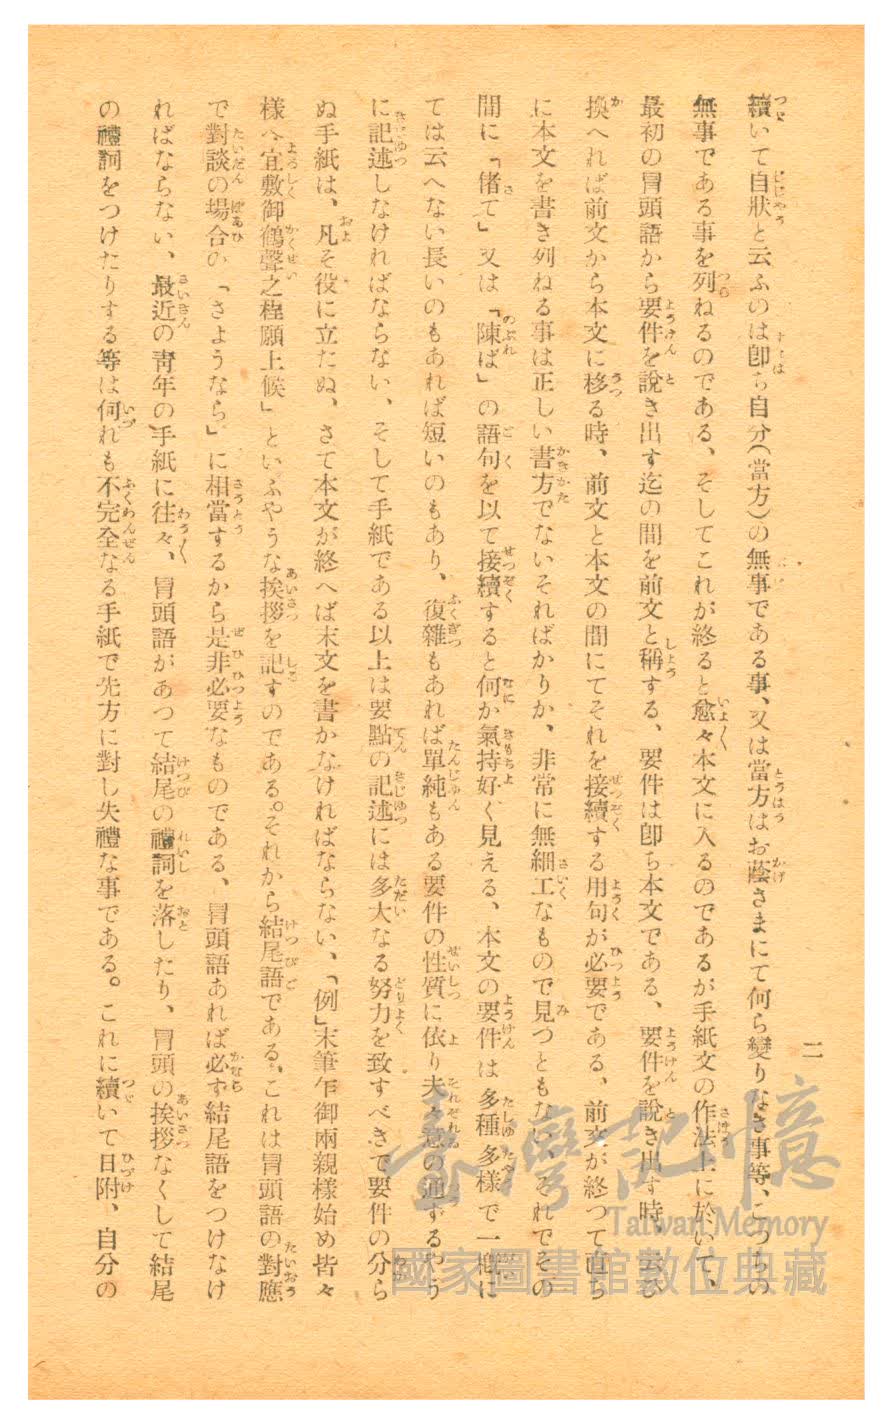 二
續いて自狀と云ふのは卽ち自分(當方)の無事である事、又は當方はお蔭さまにて何ら變りなき事等、こつちの
無事である事を列ねるのである、そしてこれが終ると愈々本文に入るのであるが手紙文の作法上に於いて、
最初の冒頭語から要件を說き出す迄の間を前文と稱する、要件は卽ち本文である、要件を說き出す時、云ひ
換へれば前文から本文に移る時、前文と本文の間にてそれを接續する用句が必要である、前文が終つて直ち
に本文を書き列ねる事は正しい書方でないそればかりか、非常に無細工なもので見つともない、それでその
間に「偖て」又は「陳ば」の語句を以て接續すると何か氣持好く見える、本文の要件は多種多樣で一槪に
ては云へない長いのもあれば短いのもあり、復雜もあれば單純もある要件の性質に依り夫々意の通ずるやう
に記述しなければならない、そして手紙である以上は要點の記述には多大なる努力を致すべきで要件の分ら
ぬ手紙は、凡そ役に立たぬ、さて本文が終へば末文を書かなければならない、「例」末筆乍御兩親樣始め皆々
樣へ宜敷御鶴聲之程願上候」といふやうな挨拶を記すのである。それから結尾語である。これは冒頭語の對應
で對談の場合の「さようなら」に相當するから是非必要なものである、冒頭語あれば必ず結尾語をつけなけ
ればならない、最近の靑年の手紙に往々、冒頭語があつて結尾の禮詞を落したり、冒頭の挨拶なくして結尾
の禮詞をつけたりする等は何れも不完全なる手紙で先方に對し失禮な事である。これに續いて日附、自分の
臺灣記憶
Taiwan Memory
國家圖書館數位典藏